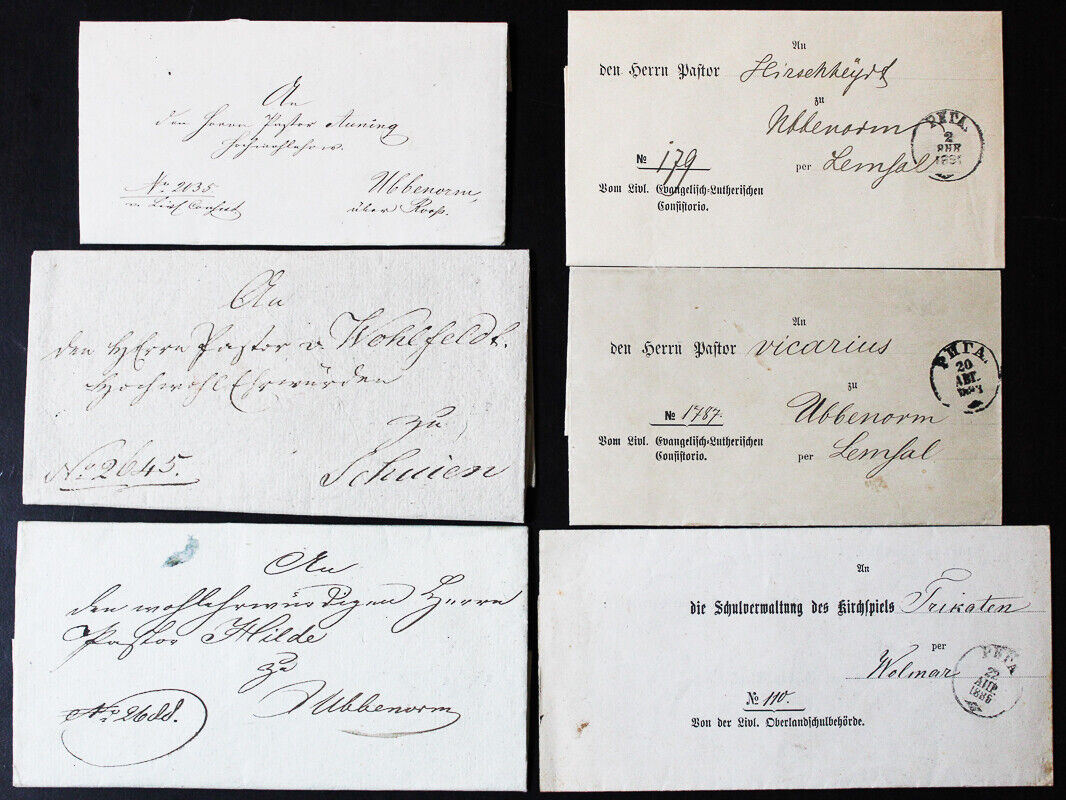 An
den Herrn Pastor Auning
Hochwohlehrw.
No 2035
Ubbenorm,
über Roop.
An
den HErrn Pastor v Wohlfeldt.
HochwohlEhrwürden
zu
No 2645.
Schujen
An
den wohlehrwürdigen Herrn
Pastor Hilde
zu
Ubbenorm
An
den Herrn Pastor Hirschheydt
zu
Ubbenorm
№ 179
per Lemsal
Vom Livl. Evangelisch-Lutherischen
Consistorio.
РИГА.
2
1881
An
den Herrn Pastor vicarius
zu
Ubbenorm
№ 1787.
per Lemsal
Vom Livl. Evangelisch-Lutherischen
Consistorio.
РИГА.
20
АВГ.
An
die Schulverwaltung des Kirchspiels Trikaten
per
Wolmar
№ 110.
Von der Livl. Oberlandschulbehörde.
РИГА
22
АПР
1886